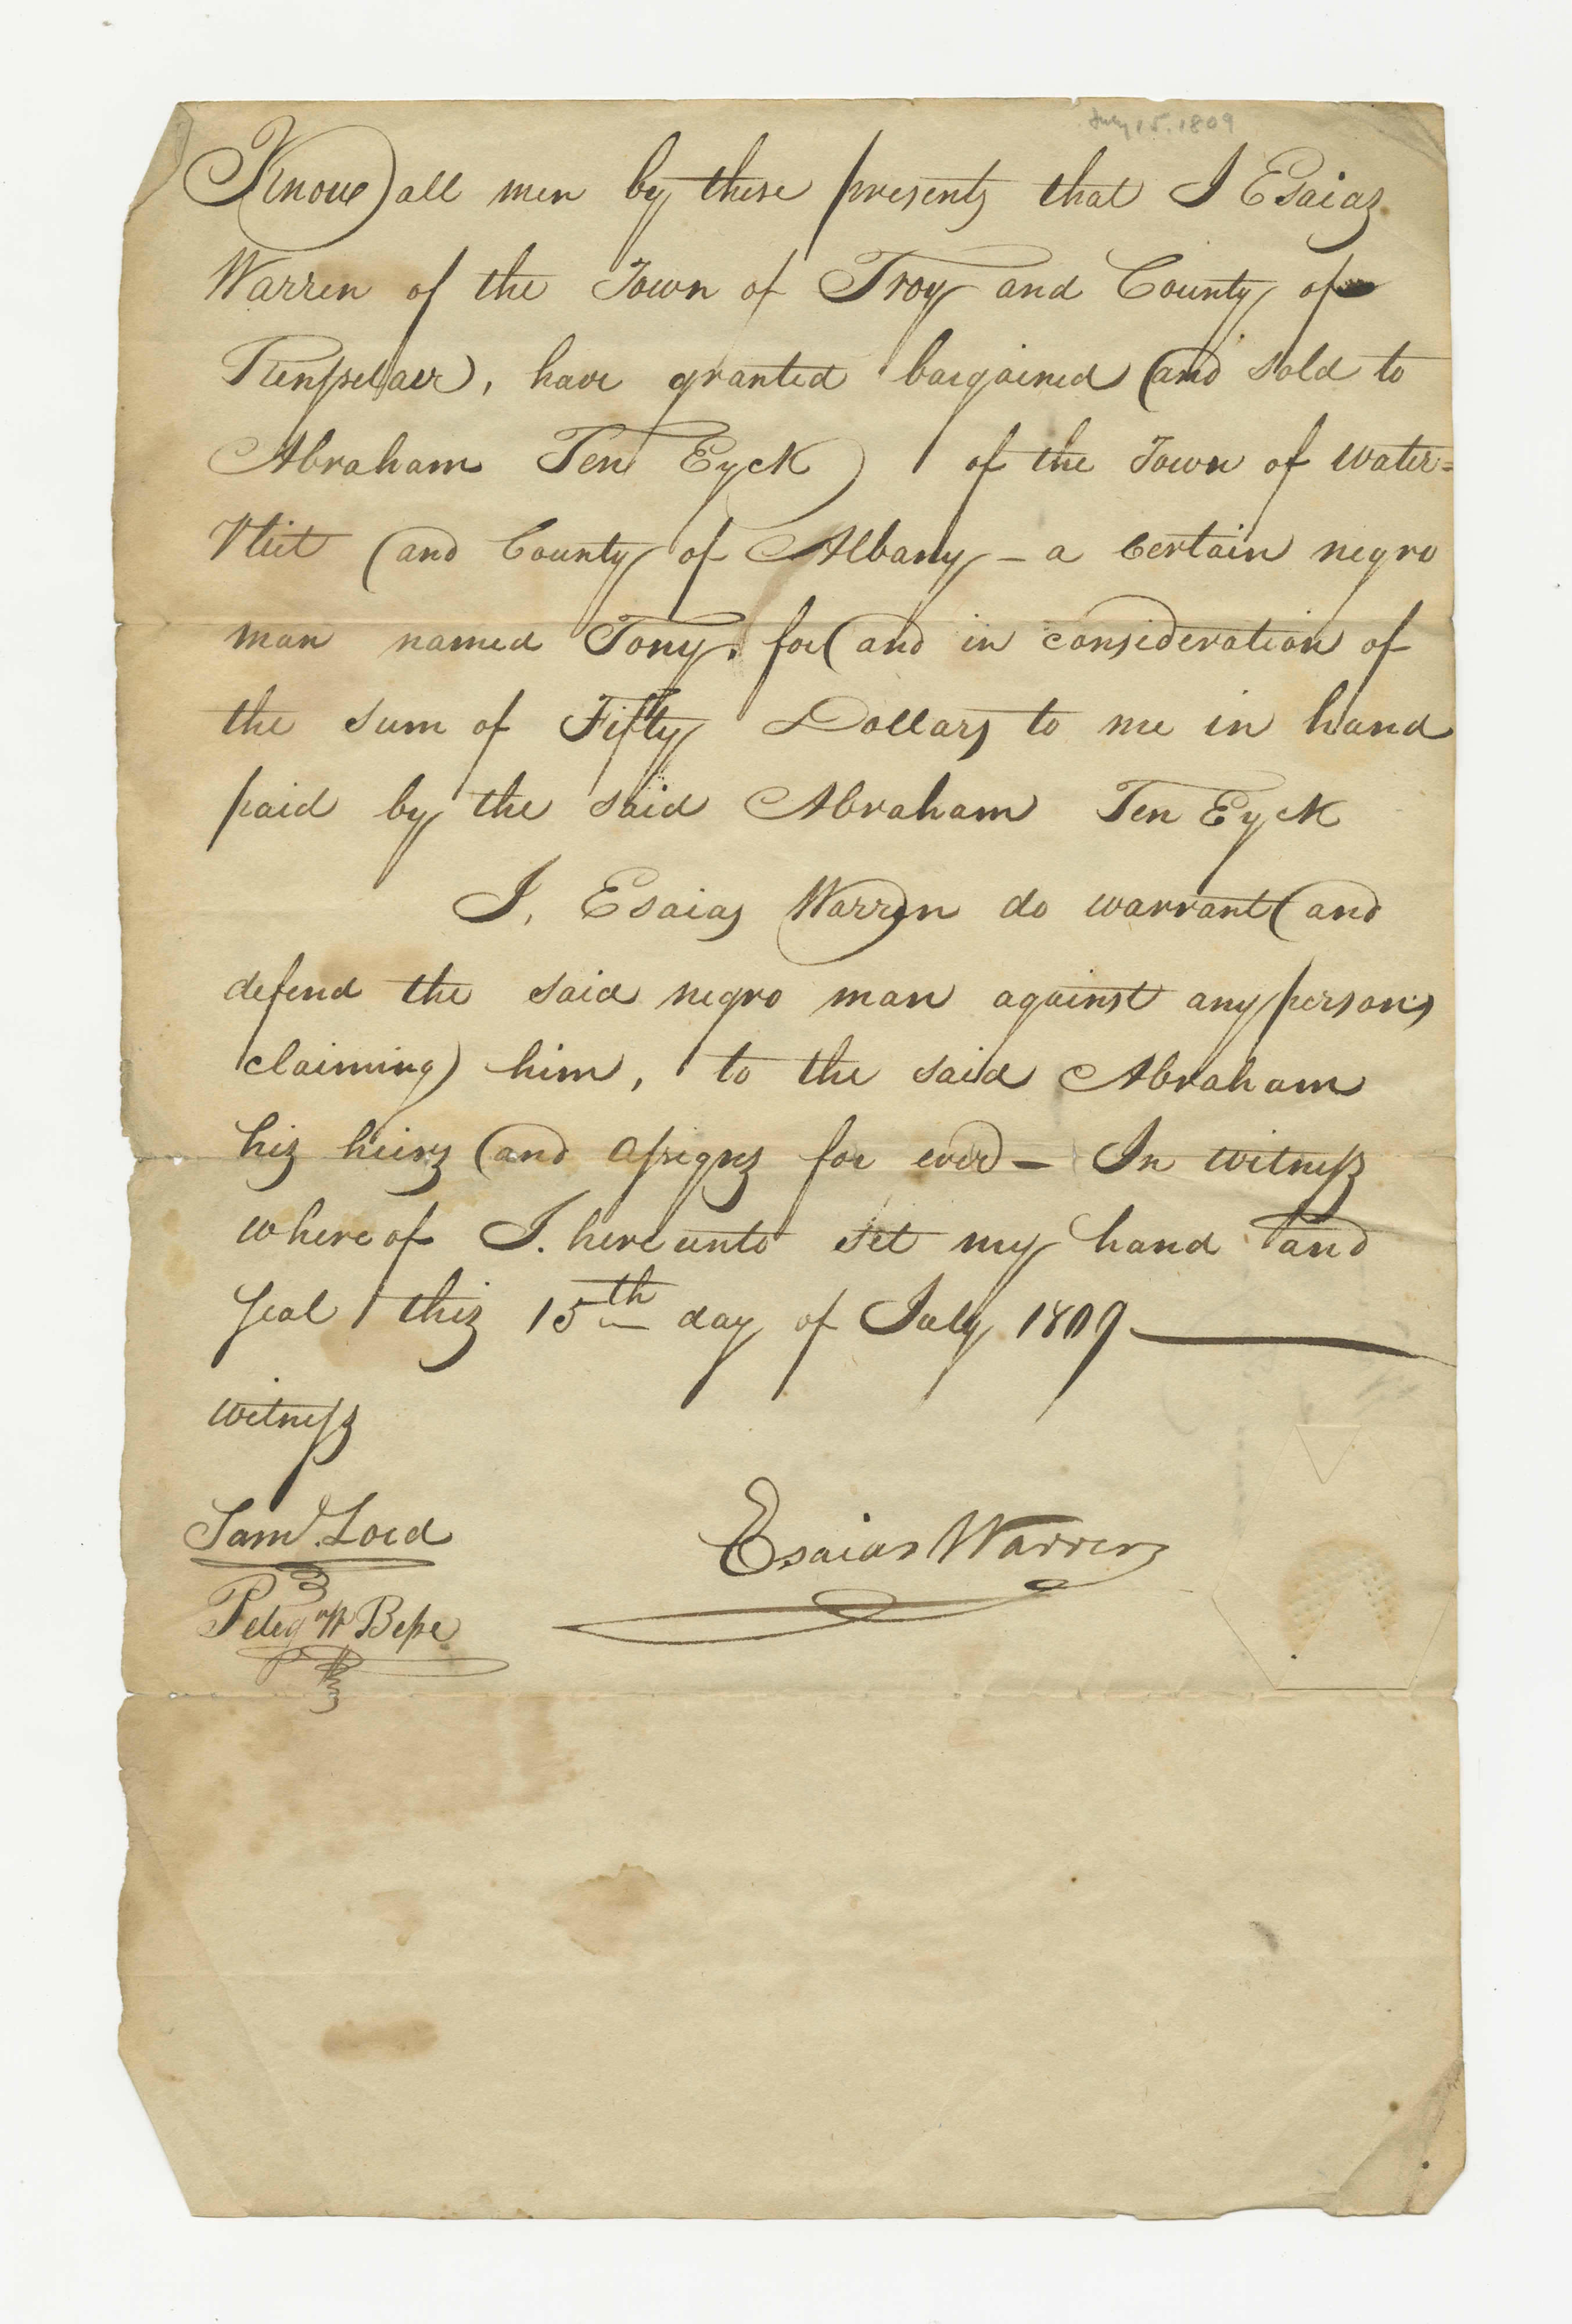 July 15. 1809
Know all men by these presents that I Esaias
Warren of the Town of Troy and County of
Rensselaer, have granted bargained and sold to
Abraham Ten Eyck of the Town of Water=
Vliet and County of Albany — a certain negro
man named Tony. for and in consideration of
the sum of Fifty Dollars to me in hand
paid by the said Abraham Ten Eyck
I, Esaias Warren do warrant and
defend the said negro man against any persons
claiming him, to the said Abraham
his heirs and assigns for ever — In witness
where of I. here unto set my hand and
seal this 15th day of July 1809
witness
Saml. Lord
Esaias Warren
Peleg W Besse